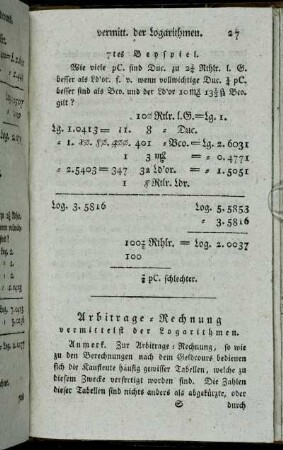 vermitt. der Logarithmen. 27
7tes Beyspiel.
Wie viele pC. sind Duc. zu 2¾ Rthlr. l. G.
besser als Ld'or. s. v. wenn vollwichtige Duc. ¾ pC.
besser sind als Bco. und der Ld'or 10 m℔ 13½ ß Bco.
gilt?
100 Rtlr. l.G. = Lg. 1.
Lg. 1.0413 = 11. 8 " Duc.
" 1. 401 " Bco. = Lg. 2.6031
1 3 m℔ = " 0.4771
" 2.5403 = 347 32 Ld'or. = " 1.5051
1 Rtlr. Ldr.
Log. 3.5816 Log. 5.5853
" 3.5816
Rthlr. = Log. 2.0037
100
pC. schlechter.
Arbitrage-Rechnung
vermittelst der Logarithmen.
Anmerk. Zur Arbitrage-Rechnung, so wie
zu den Berechnungen nach dem Geldcours bedienen
sich die Kaufleute häufig gewisser Tabellen, welche zu
diesem Zwecke verfertigt worden sind. Die Zahlen
dieser Tabellen sind nichts anders als abgekürzte, oder
S durch